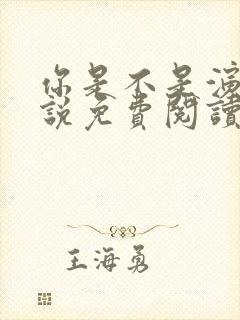 你是不是演
說免費閱讀
王海勇